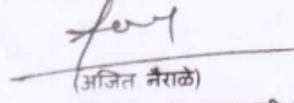 (अजित नैराळे)